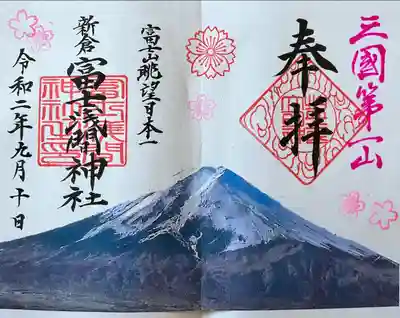 三國第一山
奉拝
富士山眺望日本一
新倉富士浅間神社
令和二年九月十日